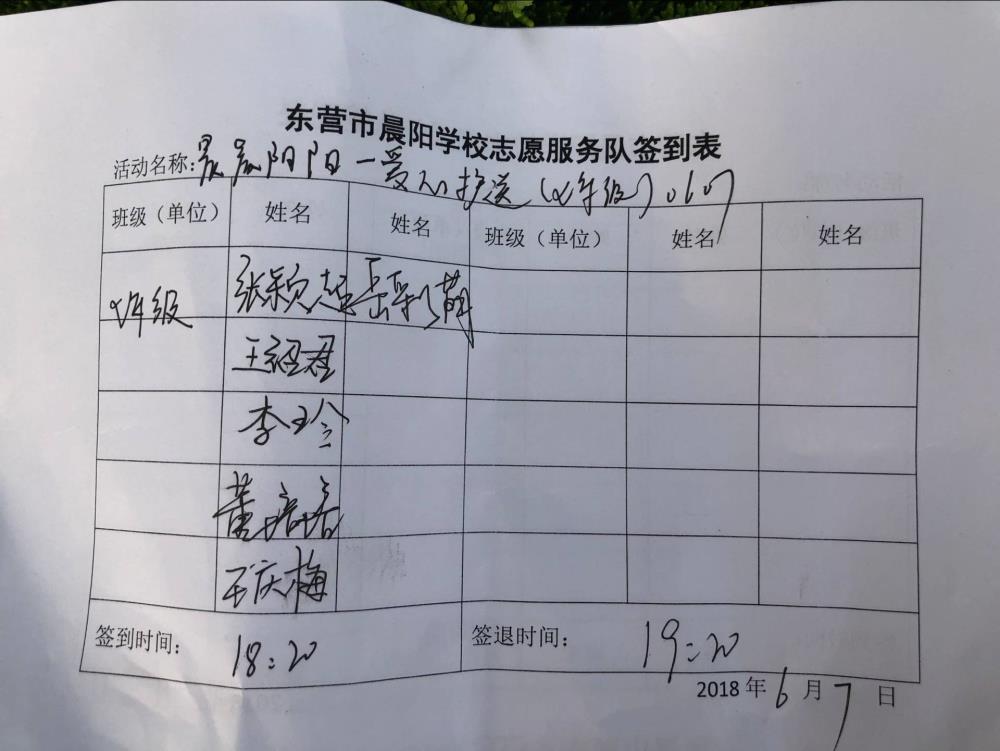 东营市晨阳学校志愿服务队签到表
活动名称：晨晨阳阳一爱心护送（七年级）0607
班级（单位） 姓名 姓名 班级（单位） 姓名 姓名
七年级 张颖超 岳彩娟
王绍君
李玲
董培培
王庆梅
签到时间： 18:20 签退时间： 19:20
2018年6月7日